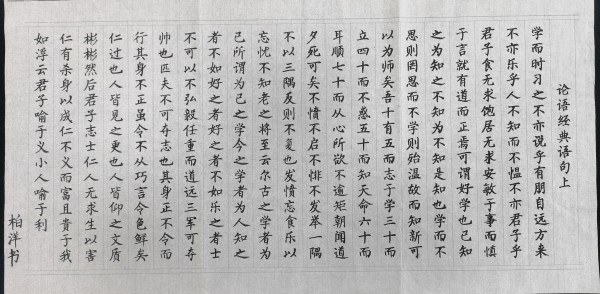 论语经典语句上
学而时习之不亦说乎有朋自远方来
不亦乐乎人不知而不愠不亦君子乎
君子食无求饱居无求安敏于事而慎
于言就有道而正焉可谓好学也已知
之为知之不知为不知是知也学而不
思则罔思而不学则殆温故而知新可
以为师矣吾十有五而志于学三十而
立四十而不惑五十而知天命六十而
耳顺七十而从心所欲不逾矩朝闻道
夕死可矣不愤不启不悱不发举一隅
不以三隅反则不复也发愤忘食乐以
忘忧不知老之将至云尔古之学者为
己所谓为己之学今之学者为人知之
者不如好之者好之者不如乐之者士
不可以不弘毅任重而道远三军可夺
帅也匹夫不可夺志也其身正不令而
行其身不正虽令不从巧言令色鲜矣
仁过也人皆见之更也人皆仰之文质
彬彬然后君子志士仁人无求生以害
仁有杀身以成仁不义而富且贵于我
如浮云君子喻于义小人喻于利
柏洋书